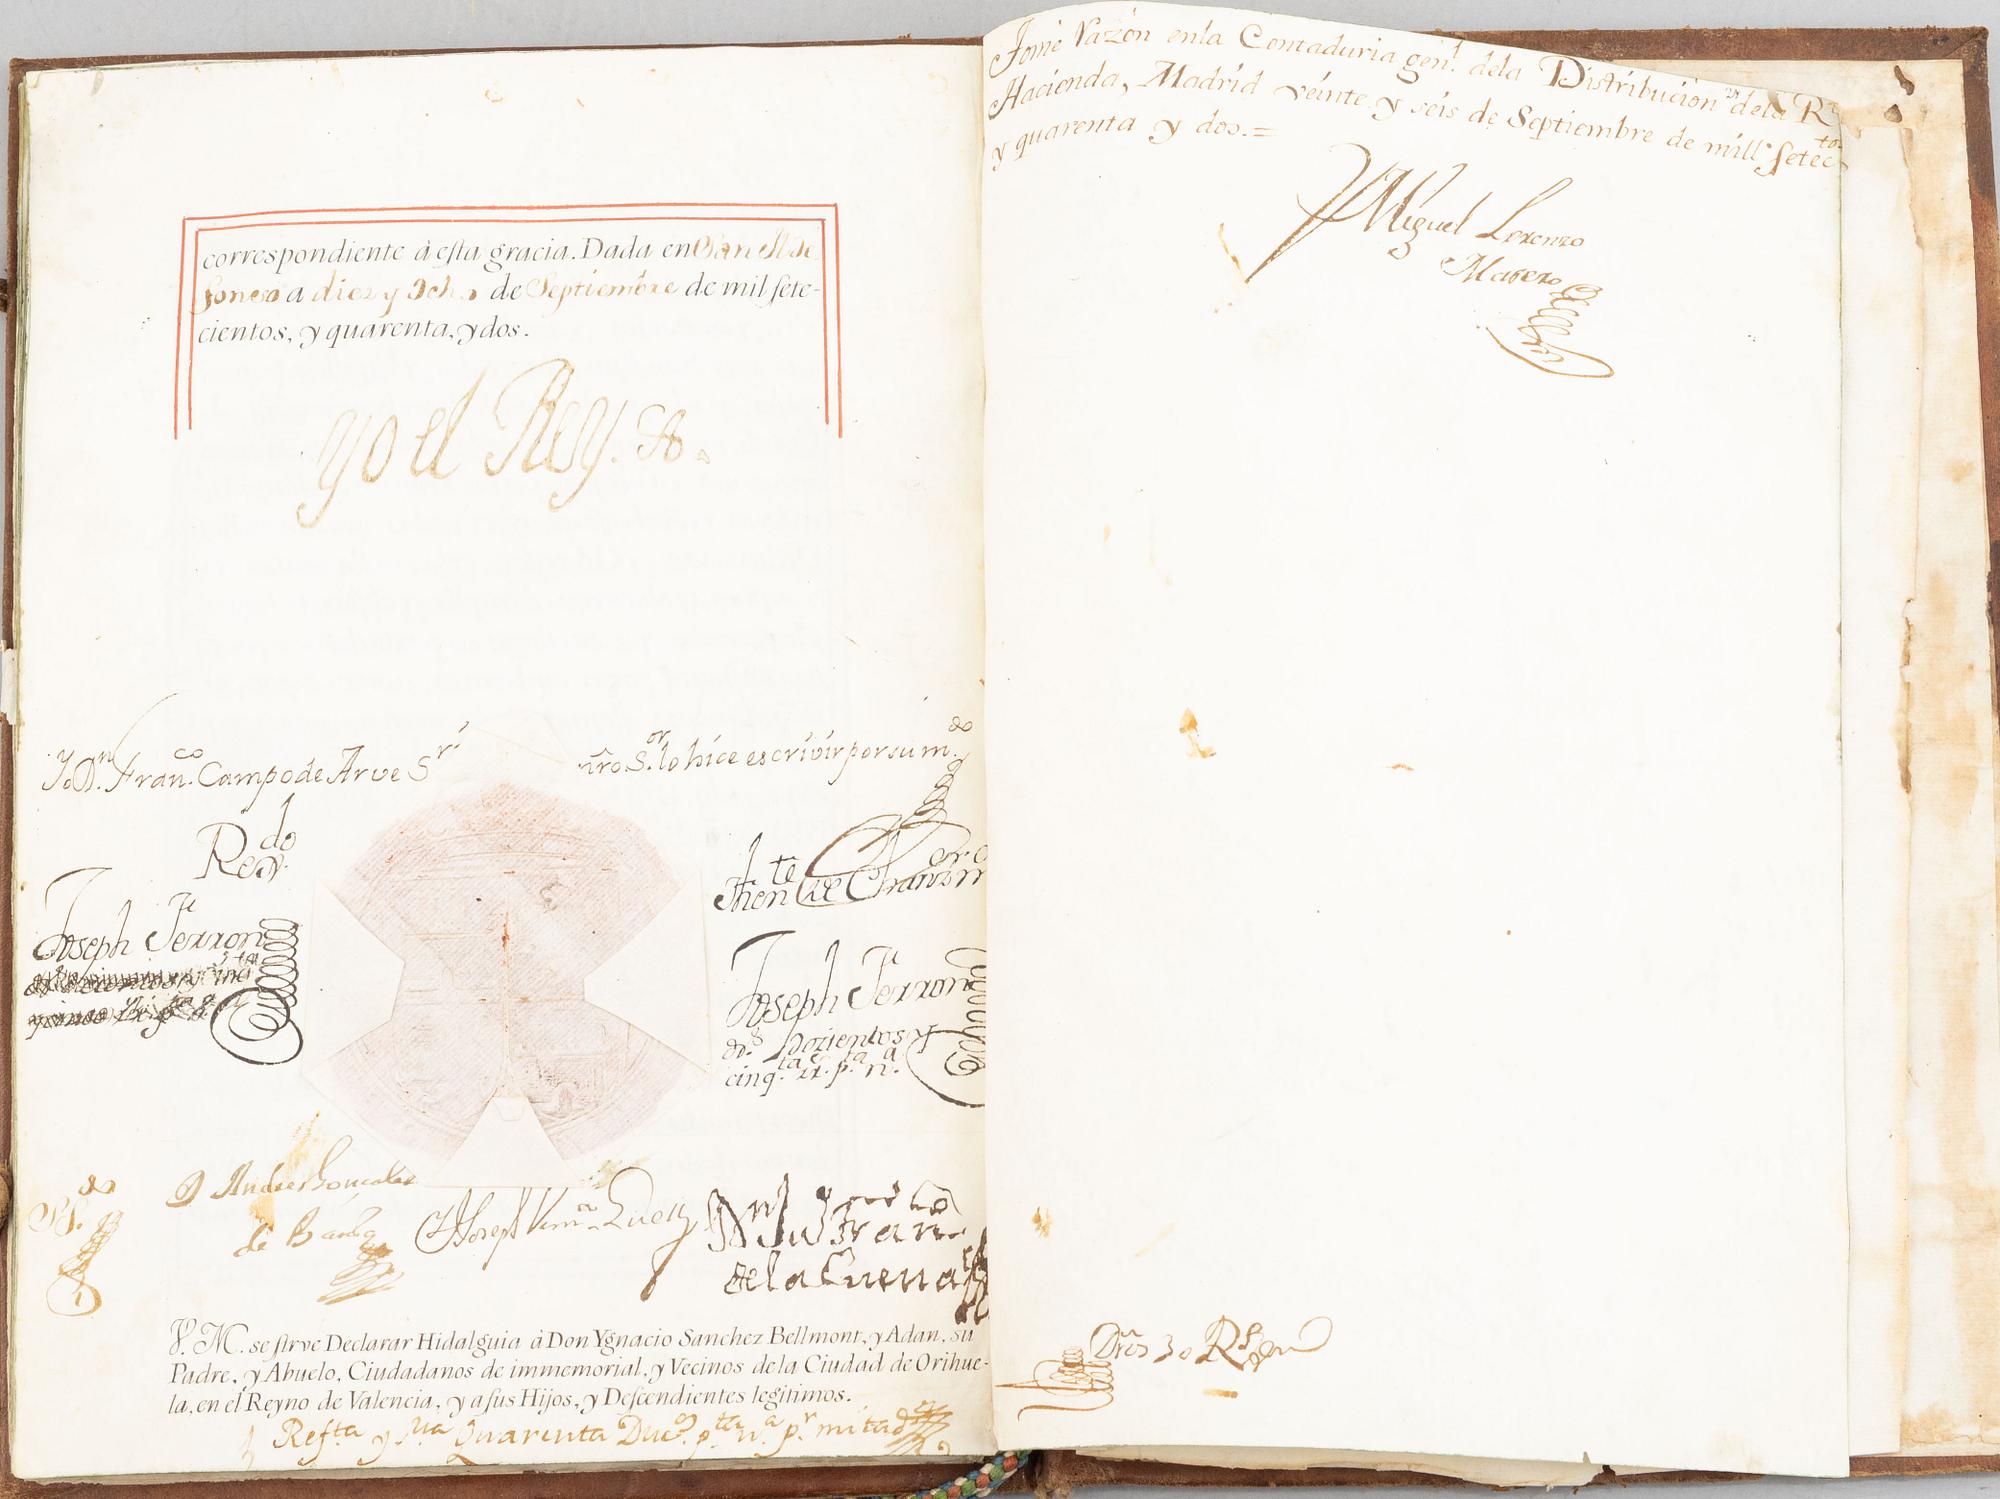 correspondiente à esta gracia. Dada en San Ilde
fonso a diez y Ocho de Septiembre de mil sete-
cientos, y quarenta, y dos.
Yo el Rey.
Yo Dn. Franco. Campo de Arve Sri
nro Sor. lo hice escrivir por su mdo.
Regdo.
Thente de Chanzor
Joseph Terron
Joseph Terron
dros Dozientos y
cinqta rr. pta na.
D Andres Gonzalez
de Barzia
Joseph
de la Cueva
V. M. se sirve Declarar Hidalguia à Don Ygnacio Sanchez Bellmont, y Adan, su
Padre, y Abuelo, Ciudadanos de immemorial, y Vecinos de la Ciudad de Orihue-
la, en el Reyno de Valencia, y a sus Hijos, y Descendientes legitimos.
Quarenta Ducs. pta na. pr mitad
Tomè Razòn en la Contaduria genl. dela Distribuciòn dela Rl
Hacienda, Madrid veinte y seis de Septiembre de mill setectos
y quarenta y dos.=
Miguel Lorenzo
Dros 30 Rs